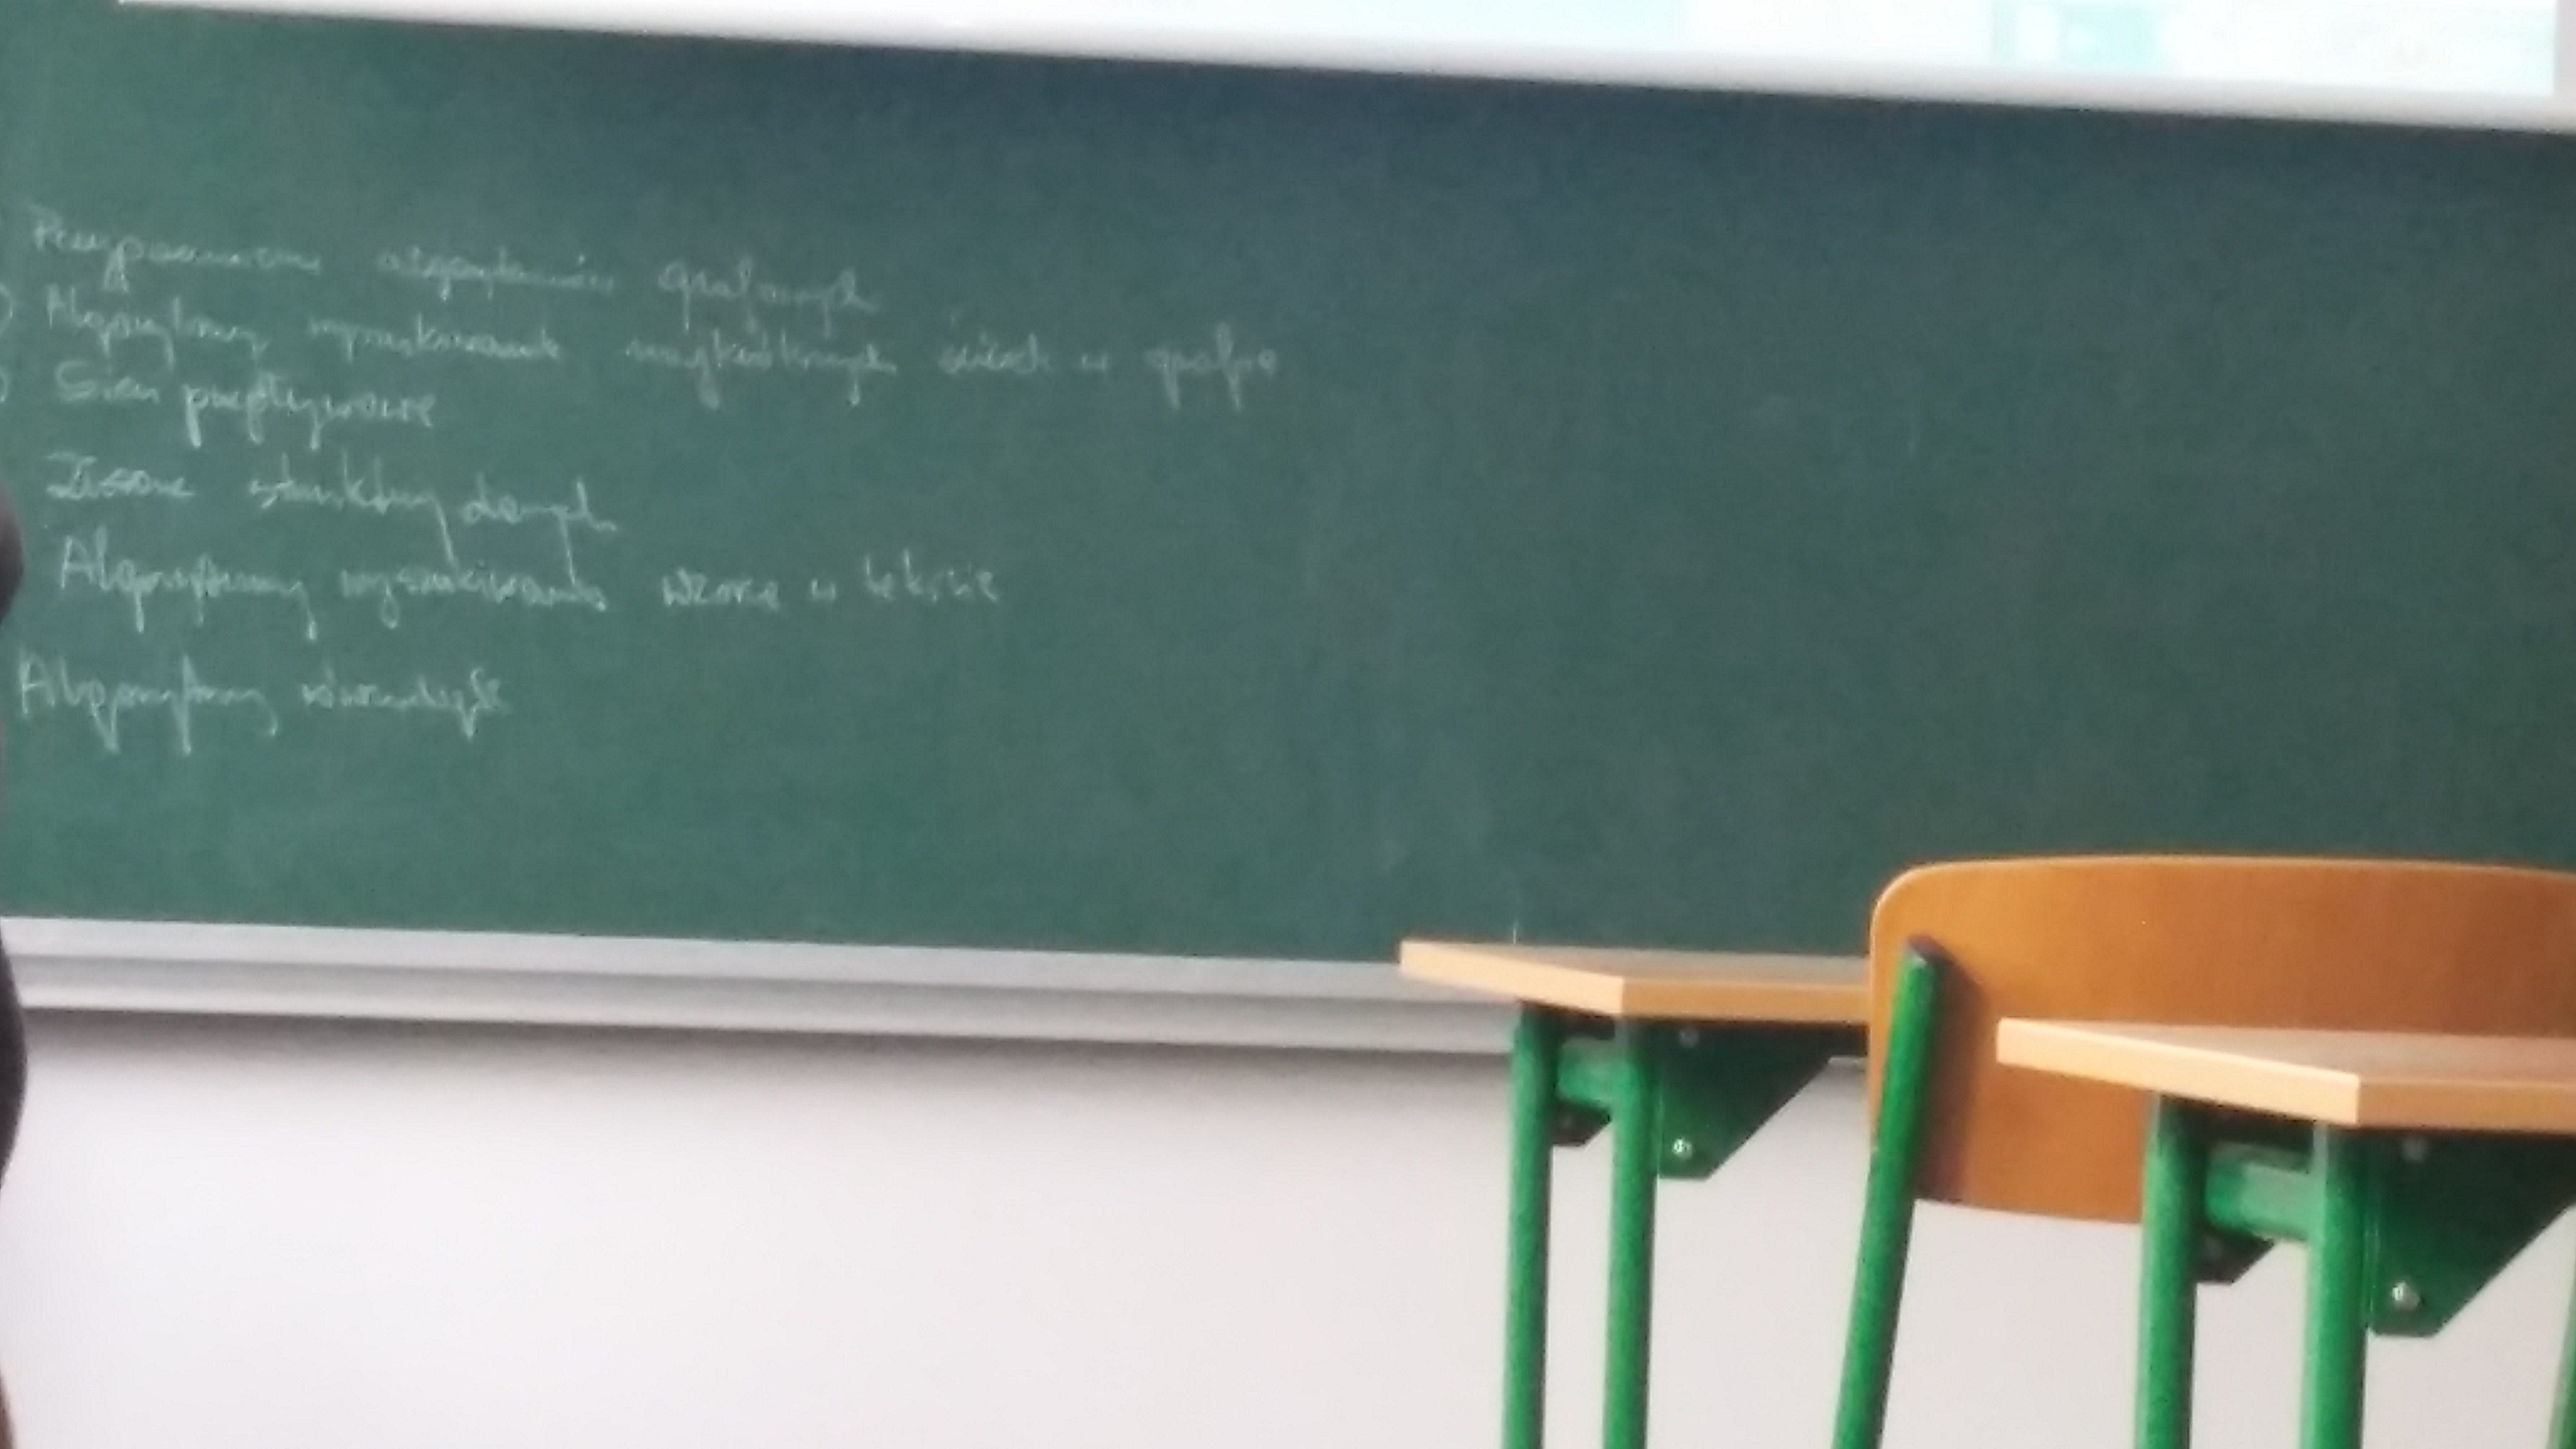 Przypomnienie algorytmów grafowych
) Algorytmy wyszukiwania najkrótszych ścieżek w grafie
) Sieci przepływowe
Złożone struktury danych
Algorytmy wyszukiwania wzorca w tekście
Algorytmy równoległe